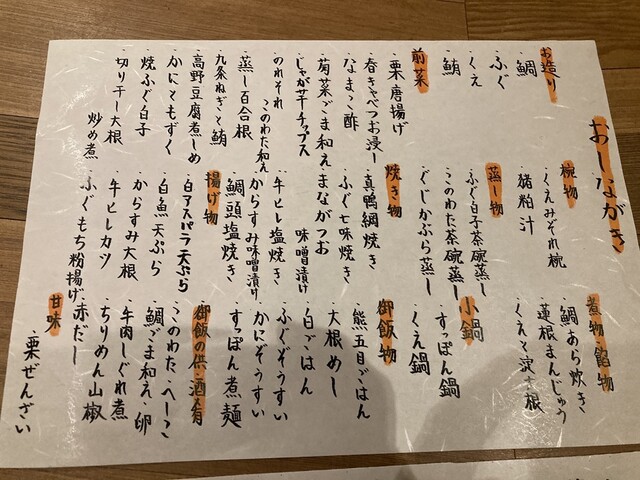 おしながき
お造り
・鯛
・ふぐ
・くえ
・鮪
前菜
・栗唐揚げ
・春きゃべつお浸し
・なまこ酢
・菊菜ごま和え
・じゃが芋チップス
・のれそれ
このわた和え
・蒸し百合根
・九条ねぎと鮪
・高野豆腐煮しめ
・かにともずく
・焼ふぐ白子
・切り干し大根
炒め煮
椀物
・くえみぞれ椀
・猪粕汁
蒸し物
・ふぐ白子茶碗蒸し
・このわた茶碗蒸し
・ぐじかぶら蒸し
焼き物
・真鴨網焼き
・ふぐ七味焼き
・まながつお
味噌漬け
・牛ヒレ塩焼き
・からすみ味噌漬け
・鯛頭塩焼き
揚げ物
・白アスパラ天ぷら
・白魚天ぷら
・からすみ大根
・牛ヒレカツ
・ふぐもち粉揚げ
煮物・餡物
・鯛あら炊き
・蓮根まんじゅう
・くえと淀大根
小鍋
・すっぽん鍋
・くえ鍋
御飯物
・熊五目ごはん
・大根めし
・白ごはん
・ふぐぞうすい
・かにぞうすい
・すっぽん煮麺
御飯の供・酒肴
・このわた・へしこ
・鯛ごま和え・卵
・牛肉しぐれ煮
・ちりめん山椒
・赤だし
甘味
・栗ぜんざい